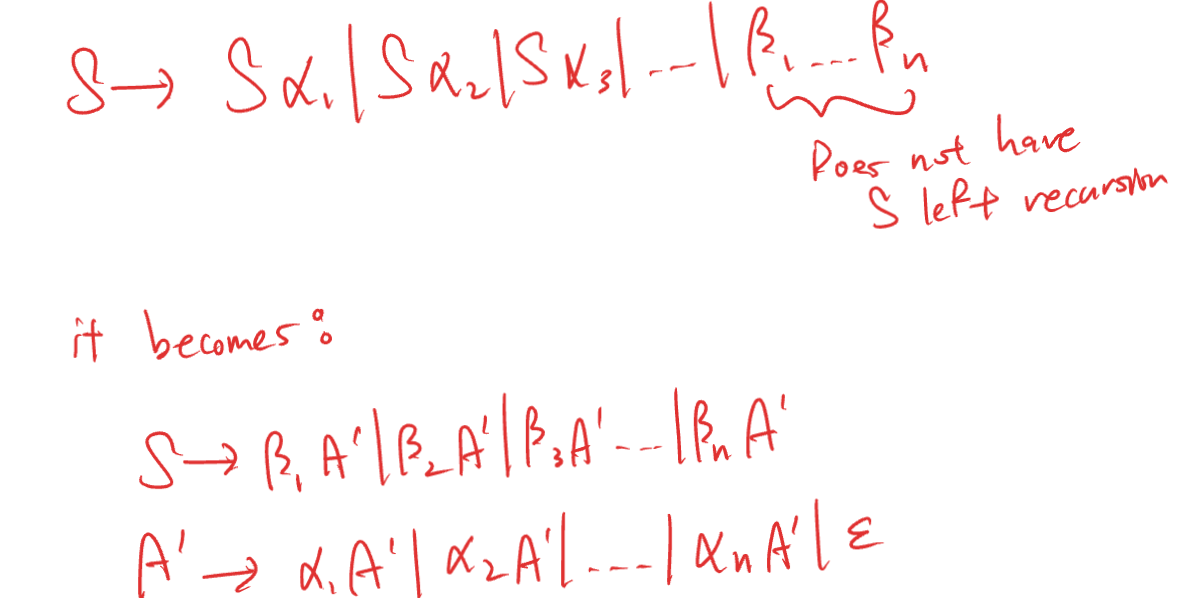 S → Sα₁|Sα₂|Sα₃|---|β₁...βₙ
Does not have
S left recursion
it becomes:
S → β₁A'|β₂A'|β₃A'---|βₙA'
A' → α₁A'|α₂A'|----|αₙA'|ε